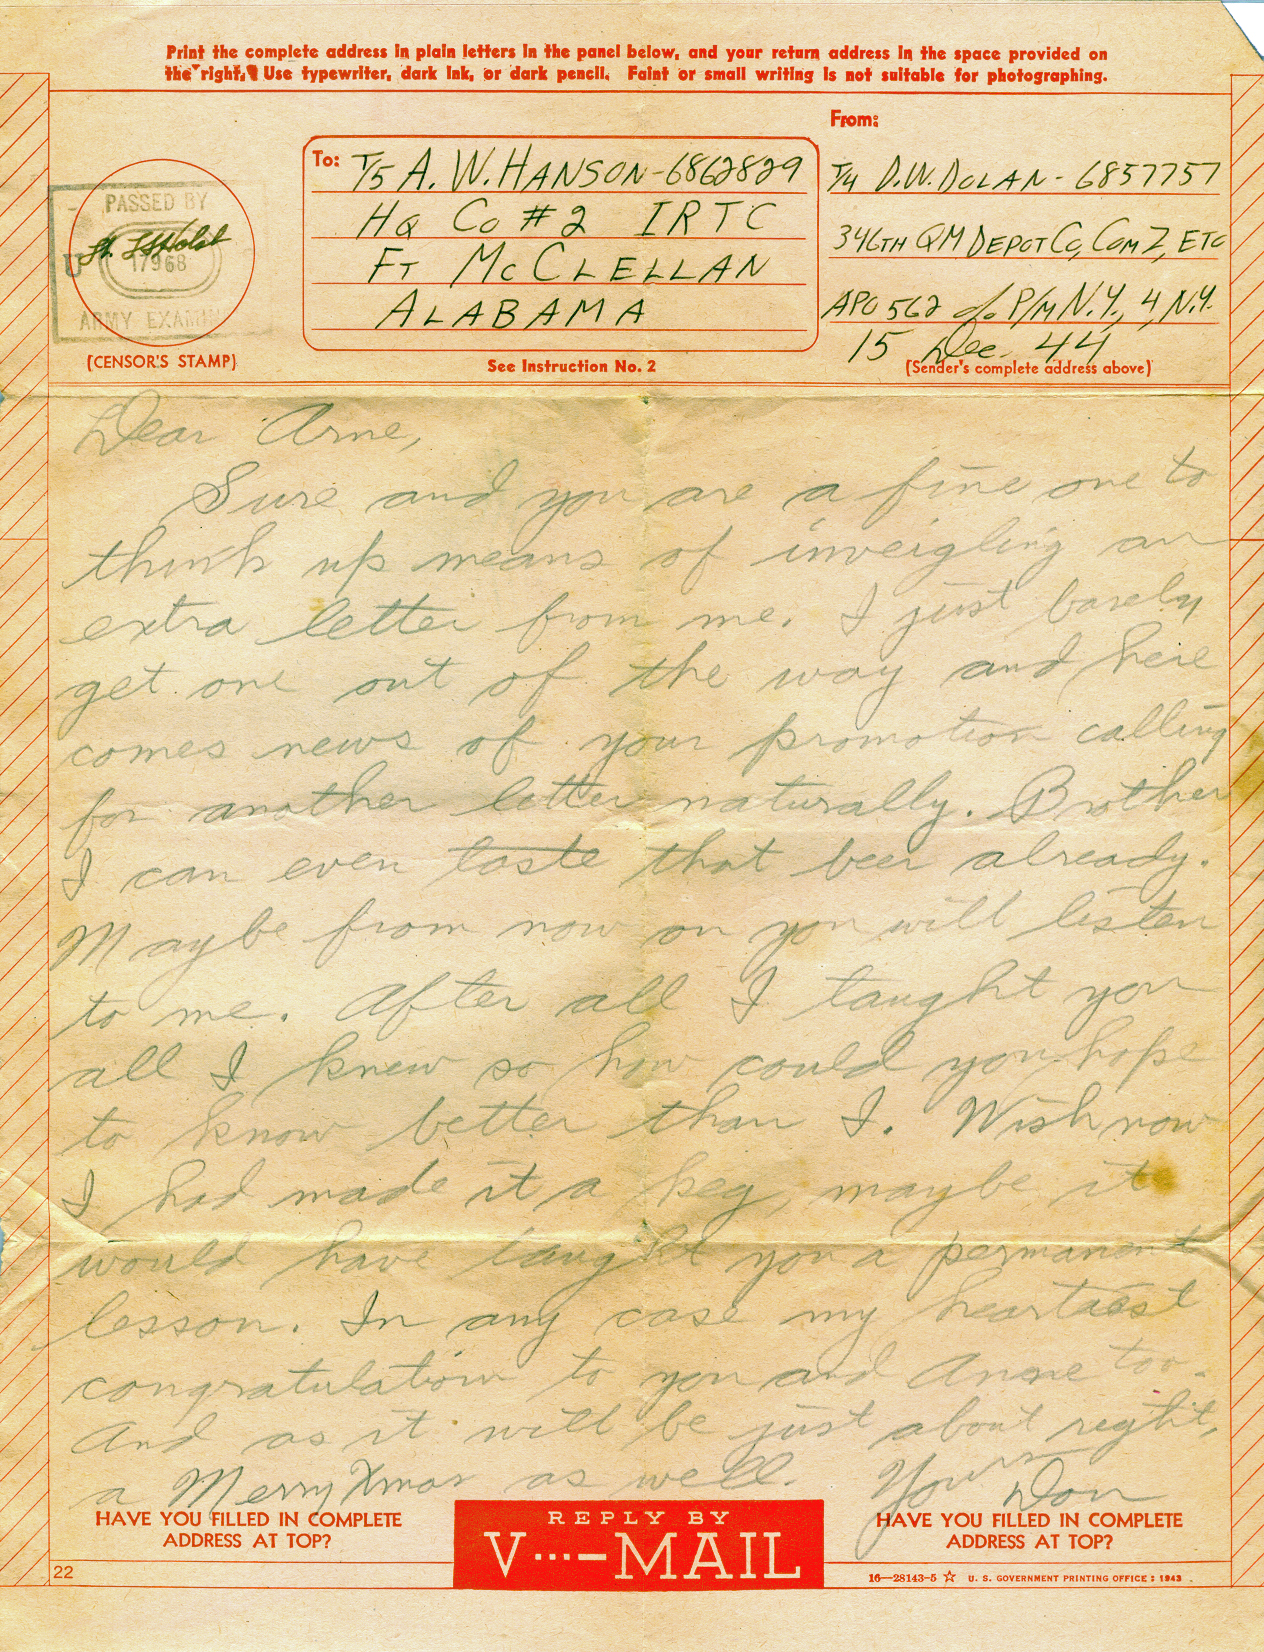 Print the complete address in plain letters in the panel below, and your return address in the space provided on
the right. Use typewriter, dark ink, or dark pencil. Faint or small writing is not suitable for photographing.
From:
To: T/5 A. W. HANSON - 6862829
HQ CO #2 IRTC
FT MCCLELLAN
ALABAMA
T/4 D.W. DOLAN - 6857757
346TH QM DEPOT CO, COM Z, ETO
APO 562 c/o P/M N.Y., 4, N.Y.
15 Dec. 44
PASSED BY
U
17968
ARMY EXAMIN
(CENSOR'S STAMP)
See Instruction No. 2
(Sender's complete address above)
Dear Arne,
Sure and you are a fine one to
think up means of inveigling an
extra letter from me. I just barely
get one out of the way and here
comes news of your promotion calling
for another letter naturally. Brother
I can even taste that beer already.
Maybe from now on you will listen
to me. After all I taught you
all I knew so how could you hope
to know better than I. Wish now
I had made it a keg, maybe it
would have taught you a permanent
lesson. In any case my heartiest
congratulation to you and Anne too.
And as it will be just about right,
a Merry Xmas as well. Yours Don
HAVE YOU FILLED IN COMPLETE
ADDRESS AT TOP?
REPLY BY
V···—MAIL
HAVE YOU FILLED IN COMPLETE
ADDRESS AT TOP?
22
16—28143-5 ☆ U. S. GOVERNMENT PRINTING OFFICE : 1943